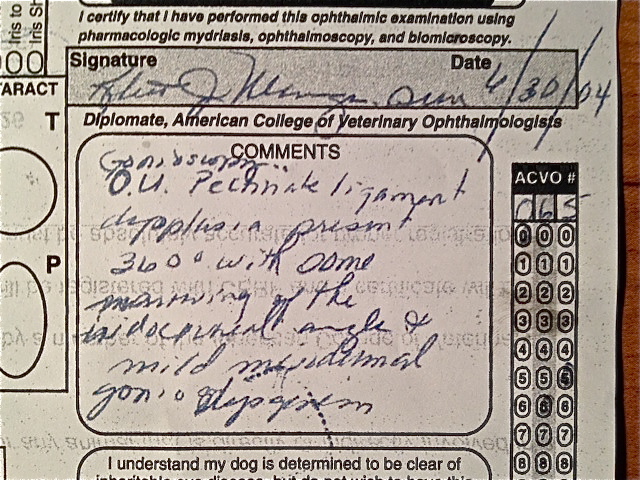 Iris to
Iris Sh
I certify that I have performed this ophthalmic examination using
pharmacologic mydriasis, ophthalmoscopy, and biomicroscopy.
Signature
Date
6/30/04
Diplomate, American College of Veterinary Ophthalmologists
TARACT
T
P
COMMENTS
Gonioscopy:
O.U. Pectinate ligament
dysplasia present
360° with some
narrowing of the
iridocorneal angle &
mild mesodermal
gonio dysgenesis
ACVO #
065
0 0 0
1 1 1
2 2 2
3 3 3
4 4 4
5 5 5
6 6 6
7 7 7
8 8 8
I understand my dog is determined to be clear of